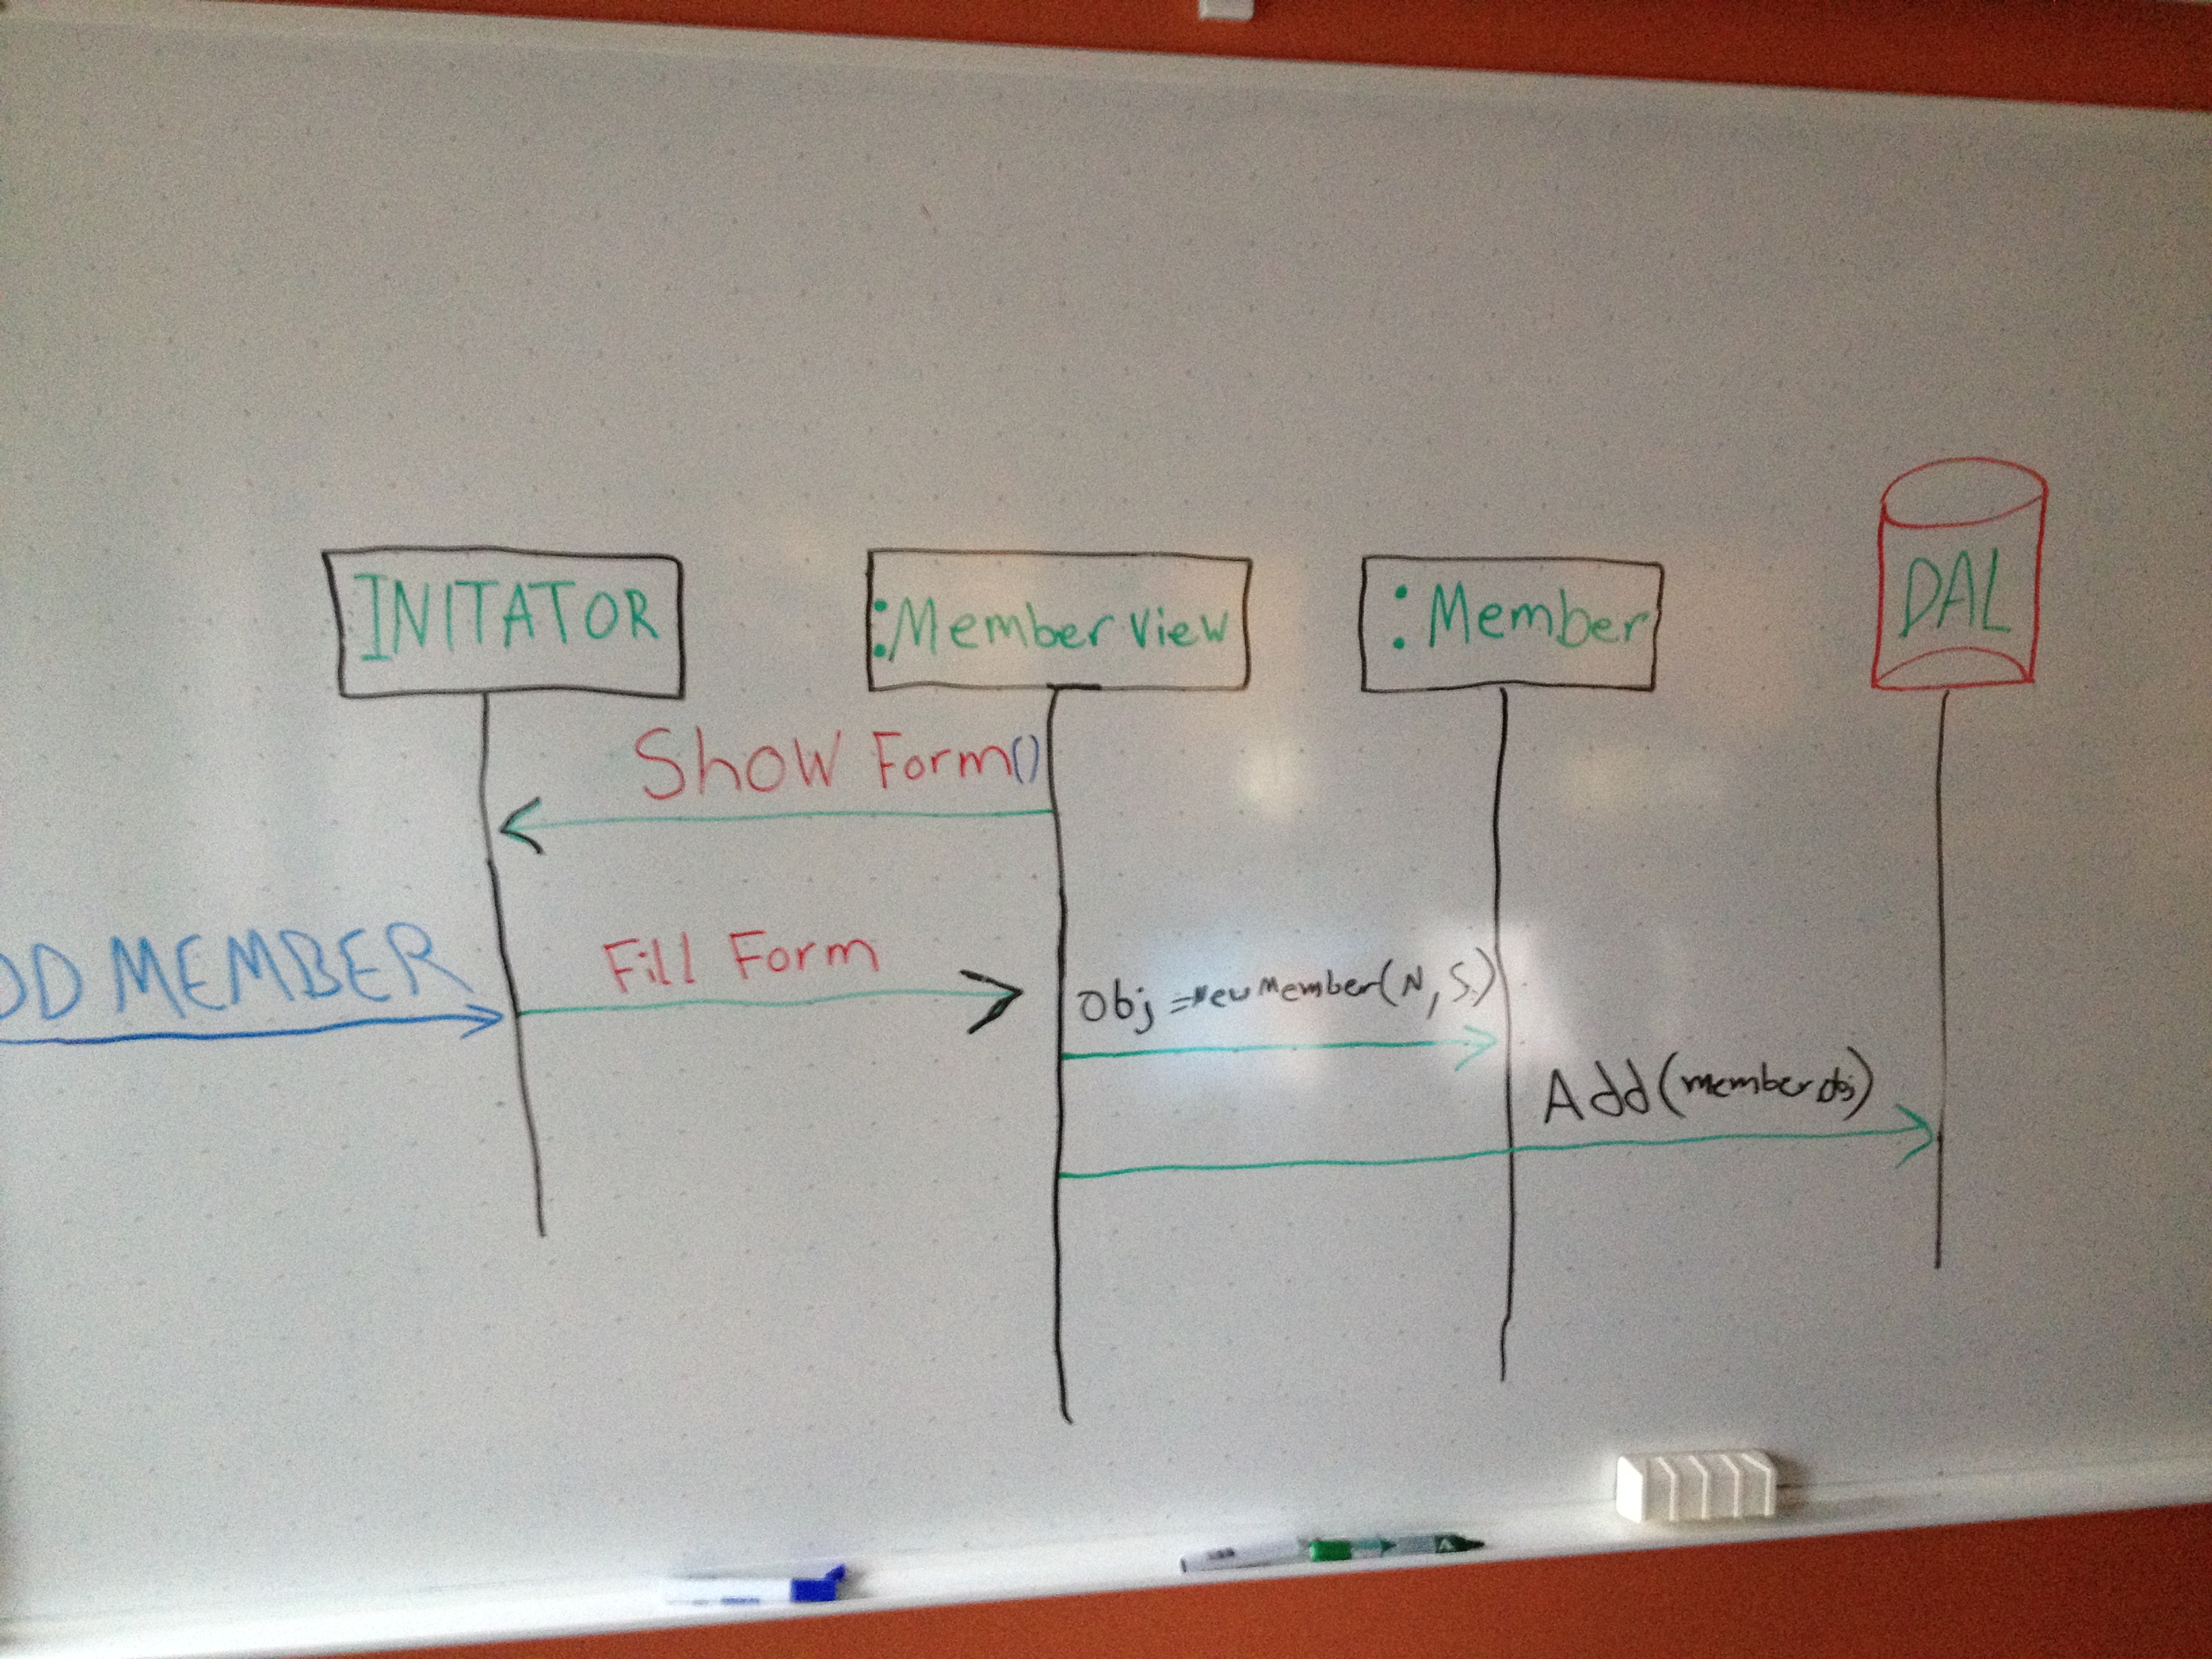 INITATOR
:Member View
:Member
DAL
Show Form()
DD MEMBER
Fill Form
Obj = New Member(N, S.)
Add(member obj)